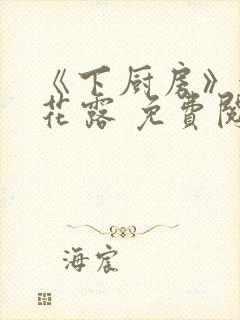 《下厨房》
花露 免費閱
海宸